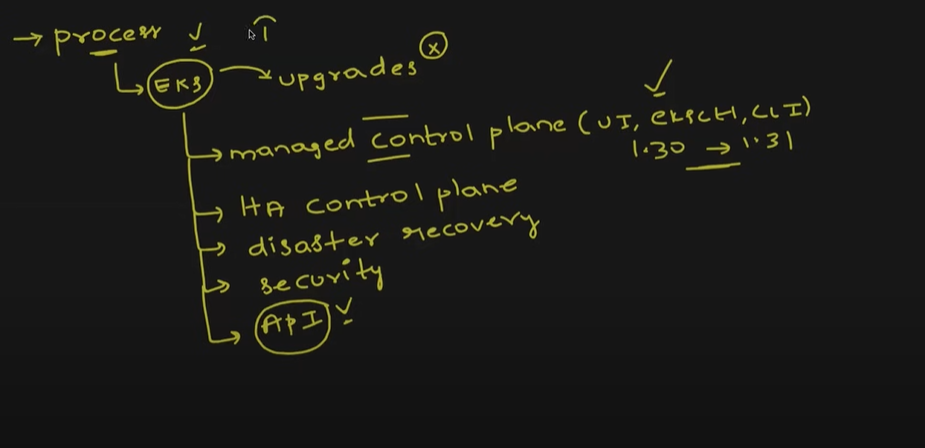 → process ✓
EKS → upgrades ⓧ
→ managed control plane (UI, eksctl, CLI)
1.30 → 1.31
→ HA control plane
→ disaster recovery
→ security
→ API ✓